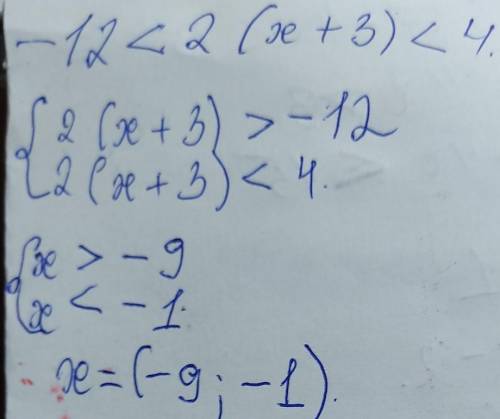 -12 < 2 (x + 3) < 4.
{ 2 (x + 3) > -12
2 (x + 3) < 4.
{ x > -9
x < -1.
x = (-9; -1).